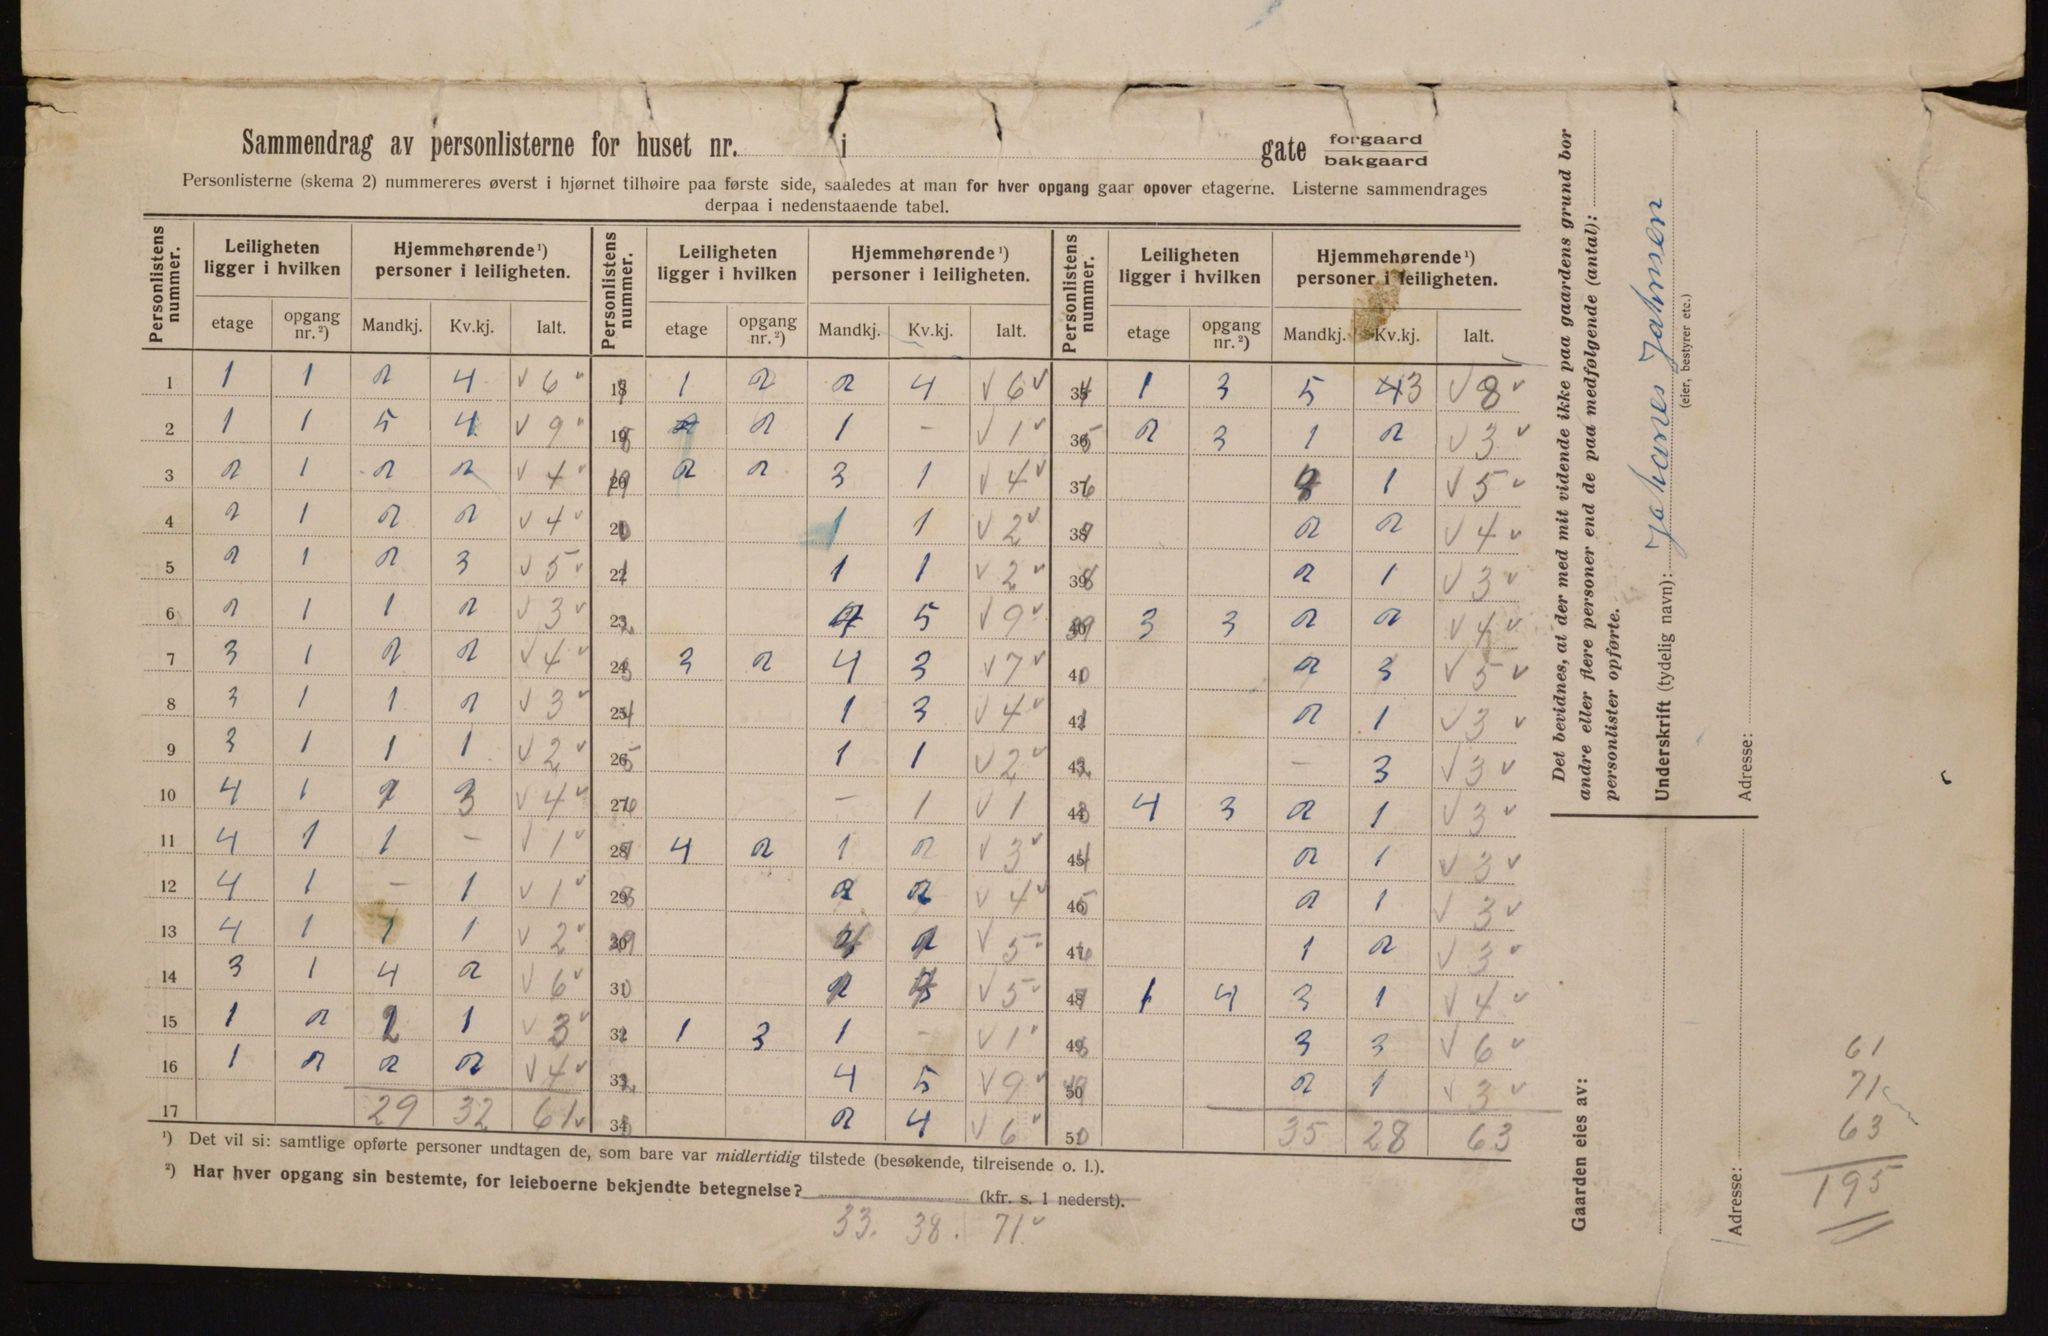 Sammendrag av personlisterne for huset nr. i gate forgaard bakgaard
Personlisterne (skema 2) nummereres øverst i hjørnet tilhøire paa første side, saaledes at man for hver opgang gaar opover etagerne. Listerne sammendrages
derpaa i nedenstaaende tabel.
Personlistens nummer. Leiligheten ligger i hvilken Hjemmehørende ¹) personer i leiligheten. Personlistens nummer. Leiligheten ligger i hvilken Hjemmehørende ¹) personer i leiligheten. Personlistens nummer. Leiligheten ligger i hvilken Hjemmehørende ¹) personer i leiligheten.
etage opgang nr. ²) Mandkj. Kv.kj. Ialt. etage opgang nr. ²) Mandkj. Kv.kj. Ialt. etage opgang nr. ²) Mandkj. Kv.kj. Ialt.
1 1 1 2 4 √ 6 18 1 2 2 4 √ 6 35 1 3 5 3 √ 8
2 1 1 5 4 √ 9 19 2 1 – √ 1 36 2 3 1 2 √ 3
3 2 1 2 2 √ 4 20 2 2 3 1 √ 4 37 1 √ 5
4 2 1 2 2 √ 4 21 1 1 √ 2 38 2 2 √ 4
5 2 1 2 3 √ 5 22 1 1 √ 2 39 2 1 √ 3
6 2 1 1 2 √ 3 23 4 5 √ 9 40 3 3 2 2 √ 4
7 3 1 2 2 √ 4 24 3 2 4 3 √ 7 41 2 3 √ 5
8 3 1 1 2 √ 3 25 1 3 √ 4 42 2 1 √ 3
9 3 1 1 1 √ 2 26 1 1 √ 2 43 – 3 √ 3
10 4 1 1 3 √ 4 27 – 1 √ 1 44 4 3 2 1 √ 3
11 4 1 1 – √ 1 28 4 2 1 2 √ 3 45 2 1 √ 3
12 4 1 – 1 √ 1 29 2 2 √ 4 46 2 1 √ 3
13 4 1 1 1 √ 2 30 √ 5 47 1 2 √ 3
14 3 1 4 2 √ 6 31 √ 5 48 1 4 3 1 √ 4
15 1 2 2 1 √ 3 32 1 3 1 – √ 1 49 3 3 √ 6
16 1 2 2 2 √ 4 33 4 5 √ 9 50 2 1 √ 3
17 29 32 61 34 2 4 √ 6 51 35 28 63
¹) Det vil si: samtlige opførte personer undtagen de, som bare var midlertidig tilstede (besøkende, tilreisende o. l.).
²) Har hver opgang sin bestemte, for leieboerne bekjendte betegnelse? (kfr. s. 1 nederst).
33. 38. 71
Det bevidnes, at der med mit vidende ikke paa gaardens grund bor
andre eller flere personer end de paa medfølgende (antal):
personlister opførte.
Underskrift (tydelig navn): Johanes Johnsen
(eier, bestyrer etc.)
Adresse:
Gaarden eies av:
Adresse:
61
71
63
195